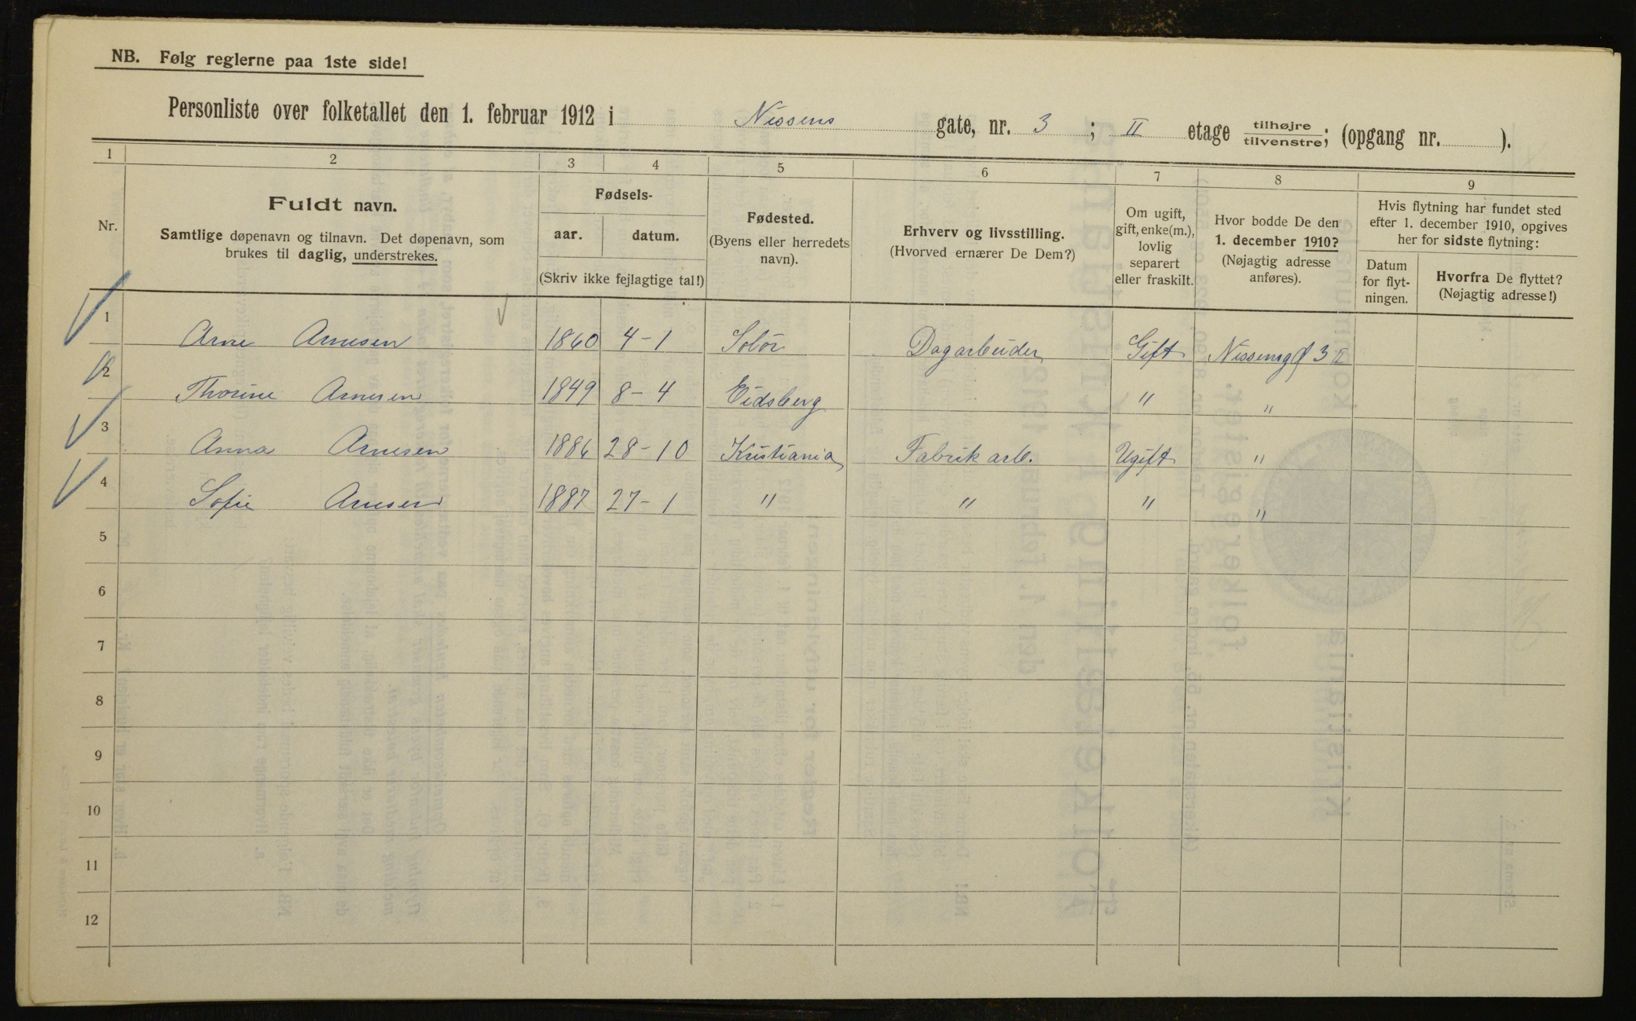 NB. Følg reglerne paa 1ste side!
Personliste over folketallet den 1. februar 1912 i Nissens gate, nr. 3 ; II etage tilhøjre/tilvenstre; (opgang nr. ).
1 2 3 4 5 6 7 8 9
Nr.
Fuldt navn.
Samtlige døpenavn og tilnavn. Det døpenavn, som
brukes til daglig, understrekes.
Fødsels-
aar. datum.
(Skriv ikke fejlagtige tal!)
Fødested.
(Byens eller herredets
navn).
Erhverv og livsstilling.
(Hvorved ernærer De Dem?)
Om ugift,
gift, enke(m.),
lovlig
separert
eller fraskilt.
Hvor bodde De den
1. december 1910?
(Nøjagtig adresse
anføres).
Hvis flytning har fundet sted
efter 1. december 1910, opgives
her for sidste flytning:
Datum
for flyt-
ningen.
Hvorfra De flyttet?
(Nøjagtig adresse!)
1 Arne Arnesen 1860 4-1 Solør Dagarbeider Gift Nissensg 3 II
2 Thorine Arnesen 1849 8-4 Eidsberg " "
3 Anna Arnesen 1886 28-10 Kristiania Fabrik arb. Ugift "
4 Sofie Arnesen 1887 27-1 " " " "
5
6
7
8
9
10
11
12